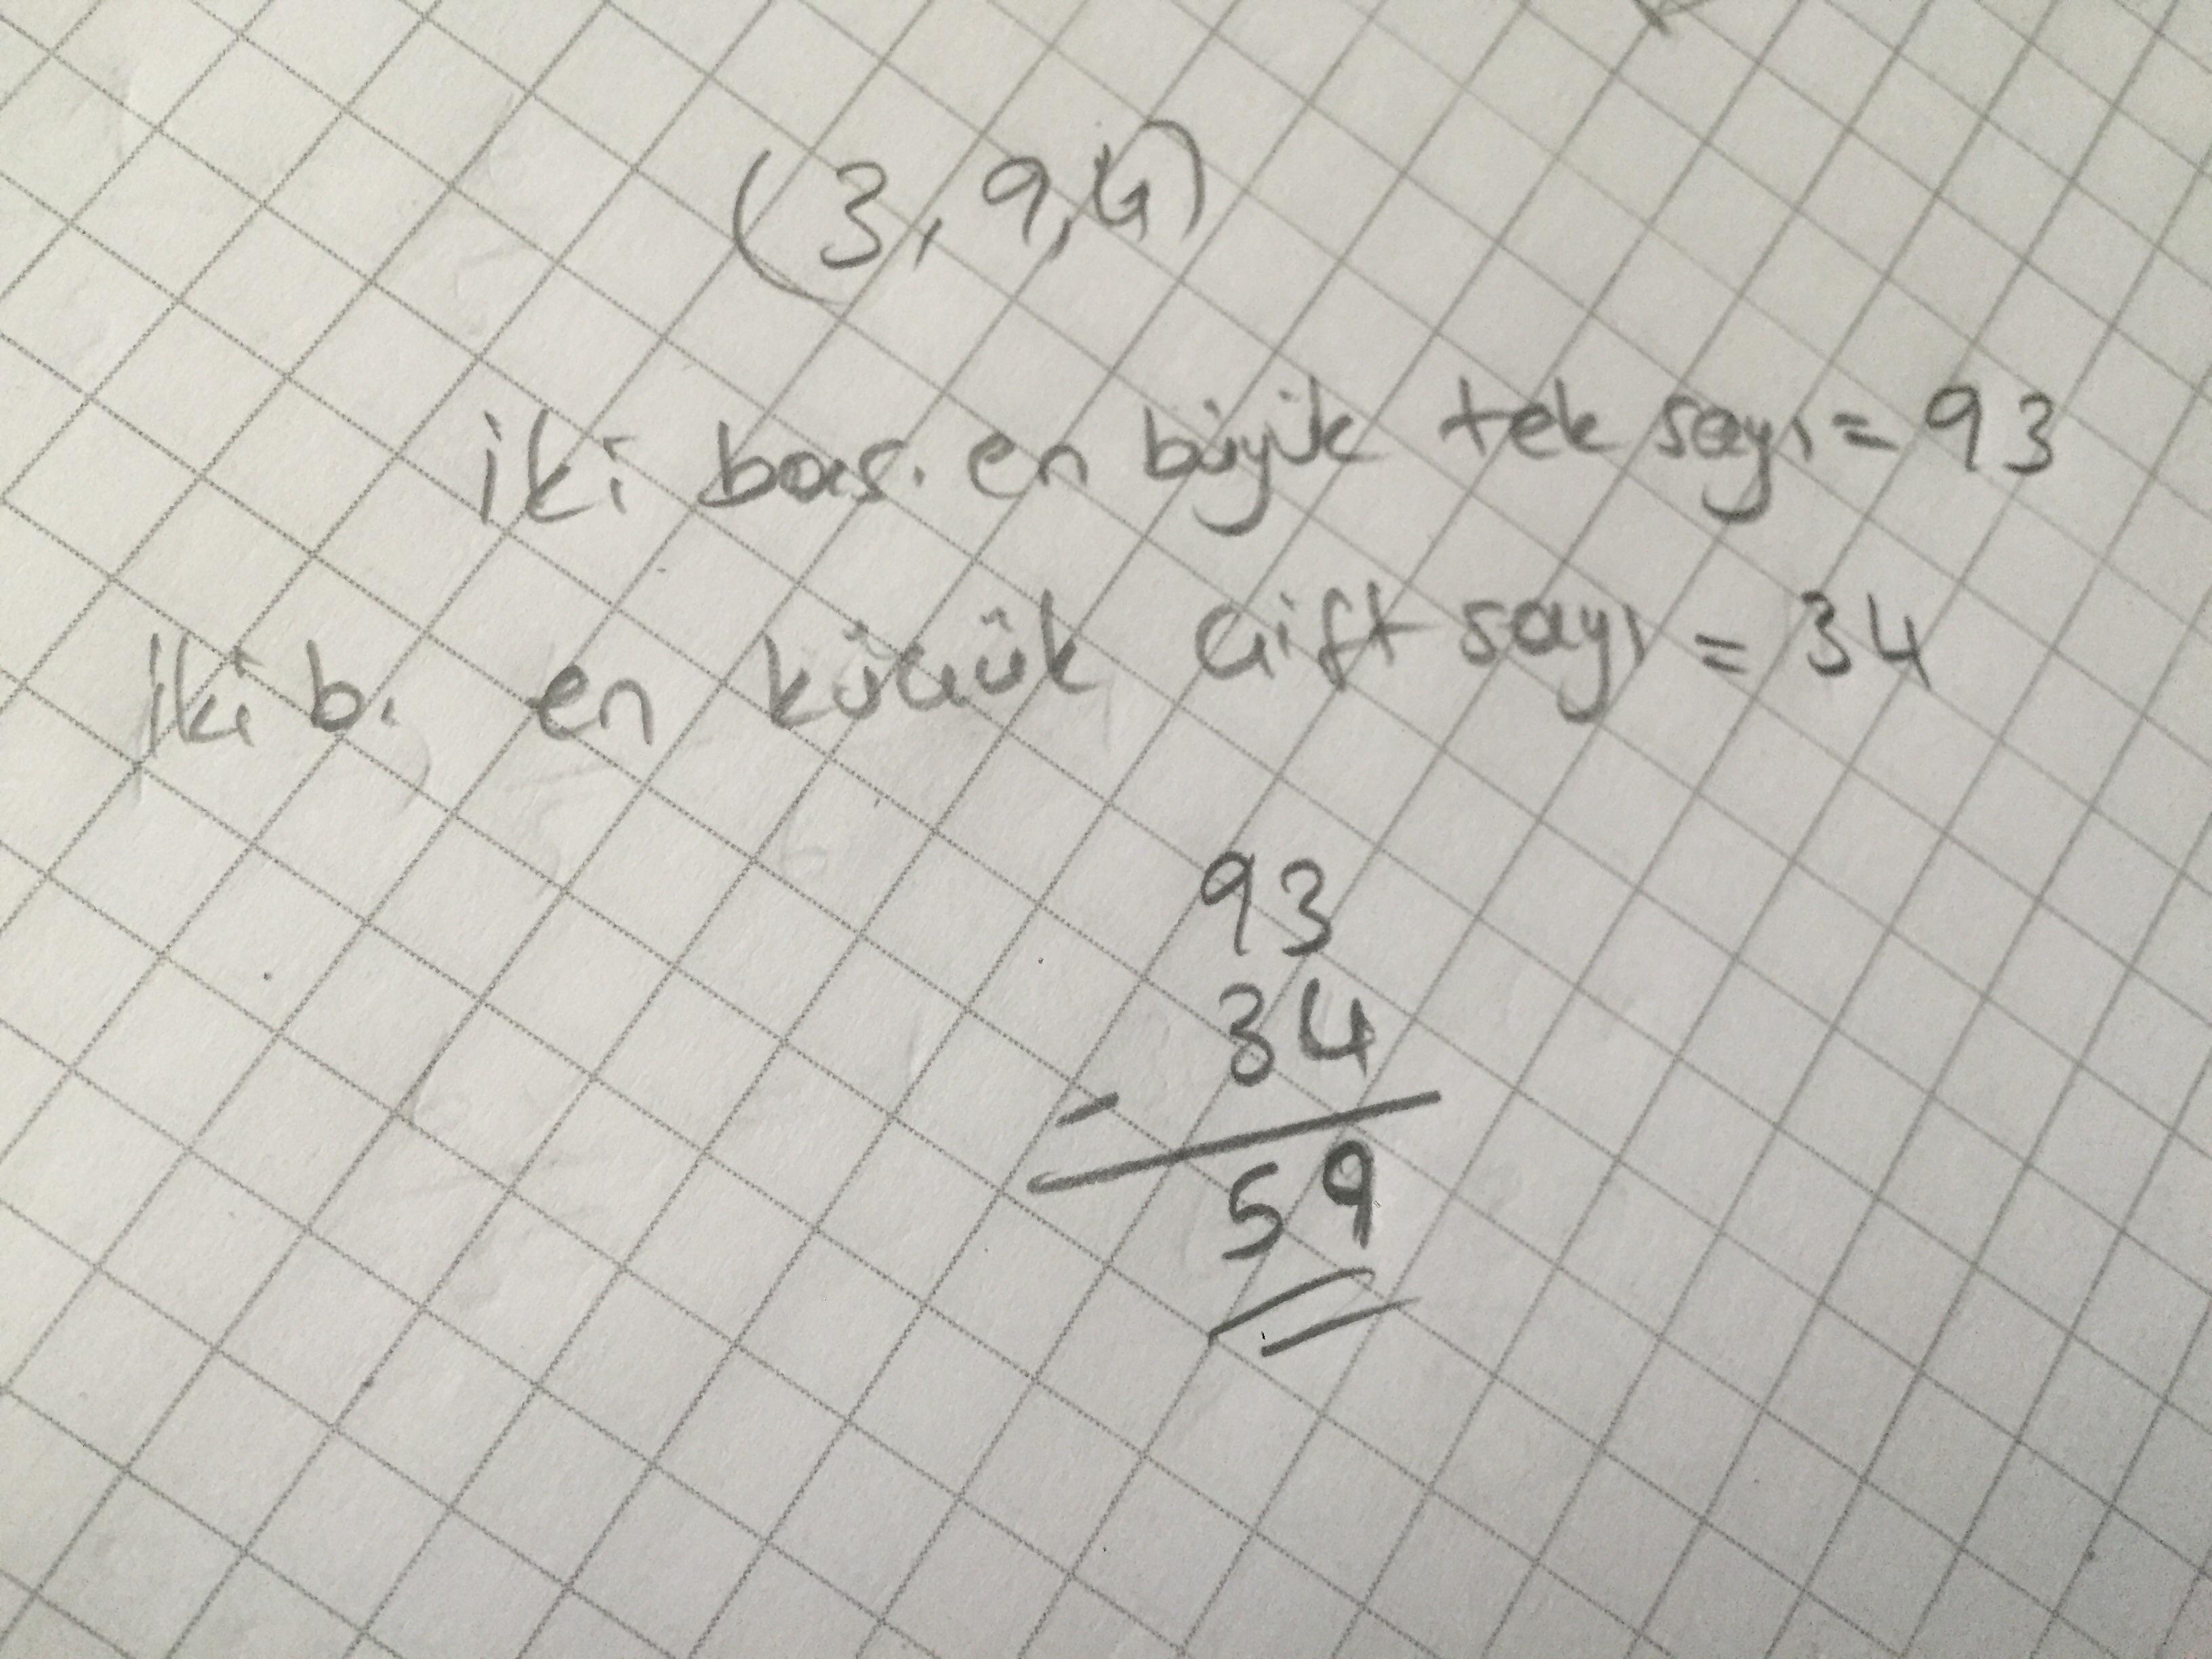 (3, 9, 4)
iki bas. en büyük tek sayı = 93
iki b. en küçük çift sayı = 34
93
34
-
59